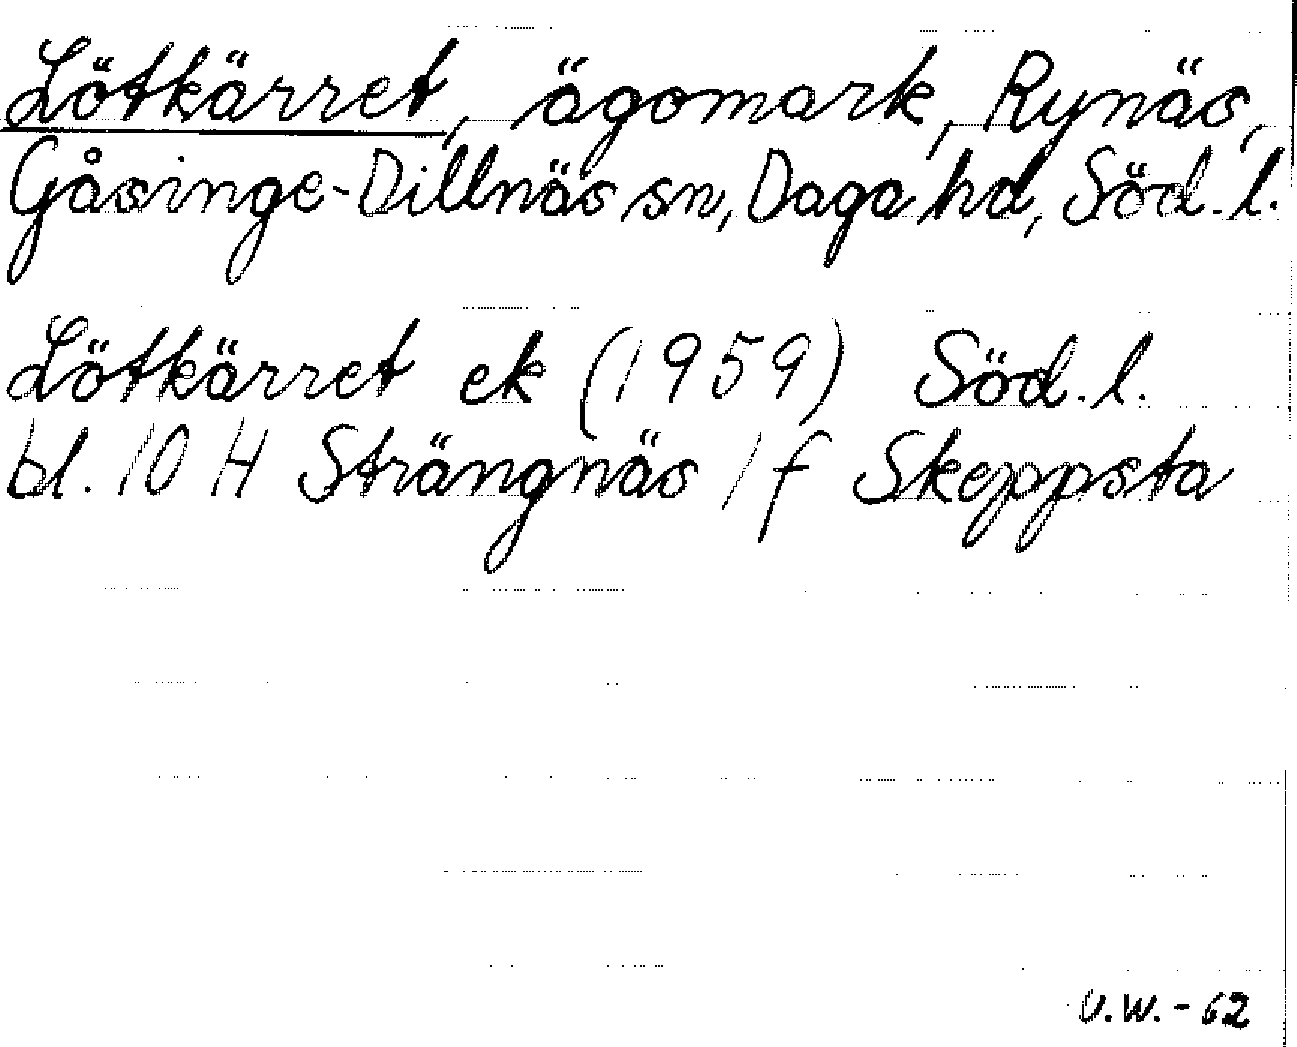 Lötkärret, ägomark, Rynäs,
Gåsinge-Dillnäs sn, Daga hd, Söd.l.
Lötkärret ek (1959) Söd.l.
bl. 10 H Strängnäs 1 f Skeppsta
U.W. - 62